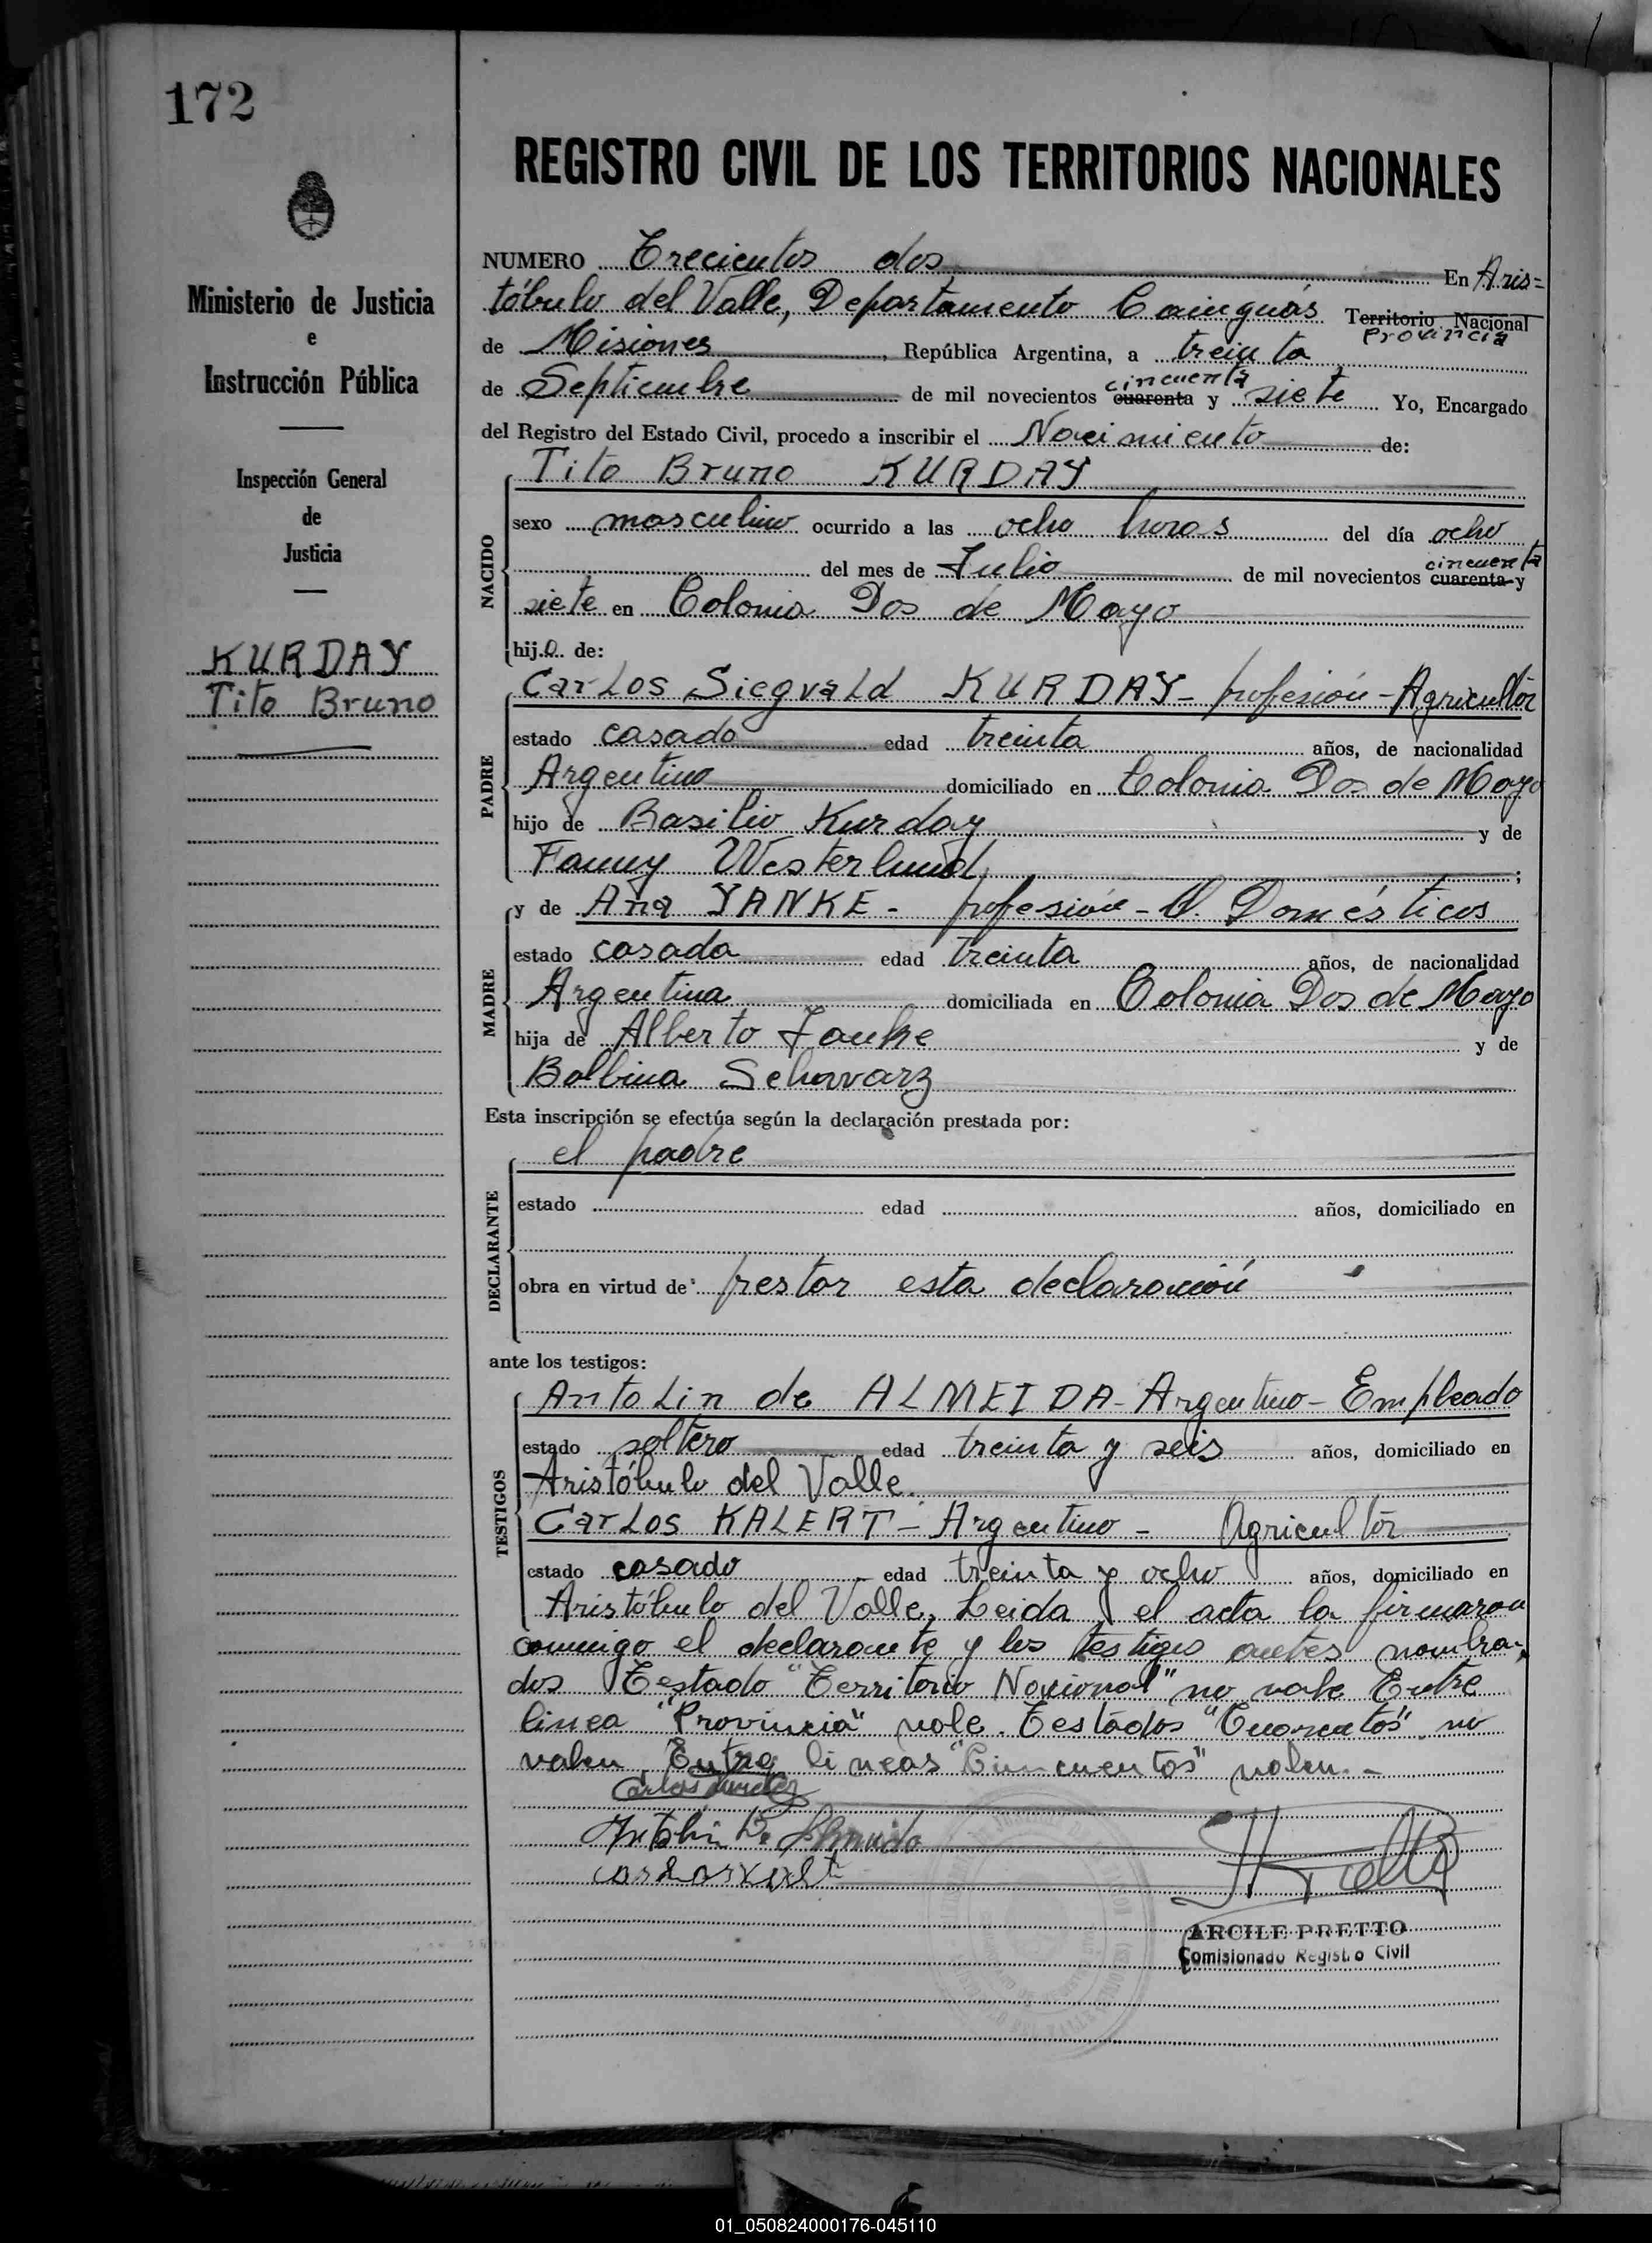 172
Ministerio de Justicia
e
Instrucción Pública
Inspección General
de
Justicia
KURDAY
Tito Bruno
REGISTRO CIVIL DE LOS TERRITORIOS NACIONALES
NUMERO Trecientos dos En Aris=
tóbulo del Valle, Departamento Cainguás Territorio Nacional
Provincia
de Misiones, República Argentina, a treinta
cincuenta
de Septiembre de mil novecientos cuarenta y siete Yo, Encargado
del Registro del Estado Civil, procedo a inscribir el Nacimiento de:
Tito Bruno KURDAY
NACIDO
sexo masculino ocurrido a las ocho horas del día ocho
cincuenta
del mes de Julio de mil novecientos cuarenta y
siete en Colonia Dos de Mayo
hijo de:
PADRE
Carlos Siegvald KURDAY - profesión - Agricultor
estado casado edad treinta años, de nacionalidad
Argentino domiciliado en Colonia Dos de Mayo
hijo de Basilio Kurday y de
Fanny Westerlund;
MADRE
y de Ana YANKE - profesión - Q. Domésticos
estado casada edad treinta años, de nacionalidad
Argentina domiciliada en Colonia Dos de Mayo
hija de Alberto Yanke y de
Balbina Schwarz
Esta inscripción se efectúa según la declaración prestada por:
DECLARANTE
el padre
estado edad años, domiciliado en
obra en virtud de prestar esta declaración
ante los testigos:
TESTIGOS
Antolin de ALMEIDA - Argentino - Empleado
estado soltero edad treinta y seis años, domiciliado en
Aristóbulo del Valle.
Carlos KALERT - Argentino - Agricultor
estado casado edad treinta y ocho años, domiciliado en
Aristóbulo del Valle, Leida el acta la firmaron
conmigo el declarante y los testigos antes nombra-
dos Testado "Territorio Nacional" no vale Entre
linea "Provincia" vale. Testados "Cuarentas" no
valen. Entre lineas "Cincuentas" valen. -
Antolin De Almeida
ARCILE PRETTO
Comisionado Registro Civil
01_050824000176-045110